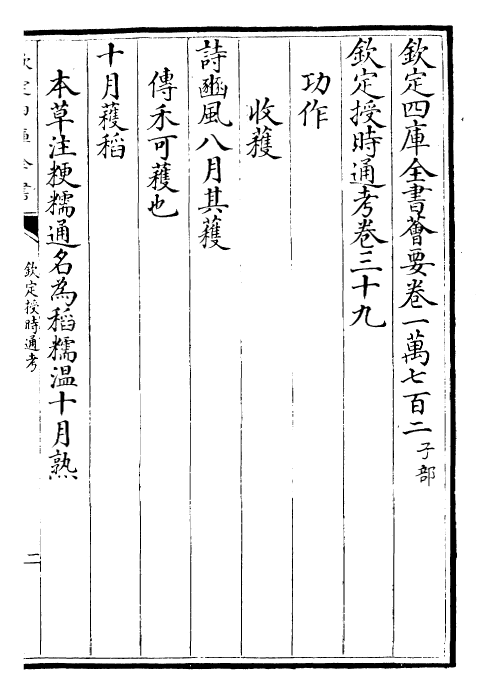 欽定四庫全書薈要卷一萬七百二子部
欽定授時通考卷三十九
功作
收穫
詩豳風八月其穫
傳禾可穫也
十月穫稻
本草注粳糯通名為稻糯温十月熟
欽定授時通考
二